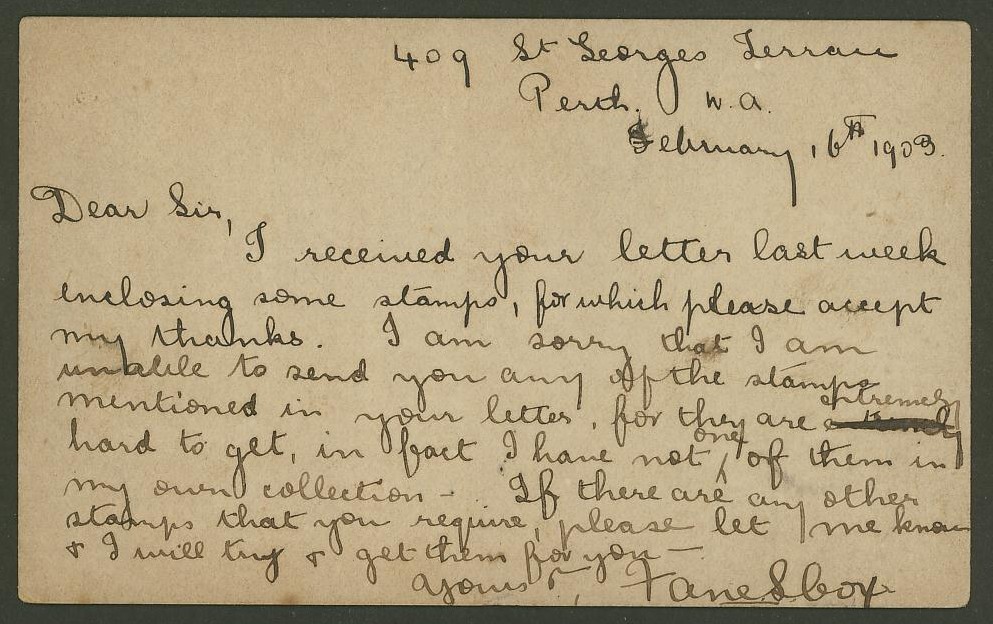 409 St Georges Terrace
Perth. W.A.
February 16th 1903.
Dear Sir,
I received your letter last week
enclosing some stamps, for which please accept
my thanks. I am sorry that I am
unable to send you any of the stamps
mentioned in your letter, for they are extremely
hard to get, in fact I have not one of them in
my own collection - . If there are any other
stamps that you require, please let me know
& I will try & get them for you —
Yours